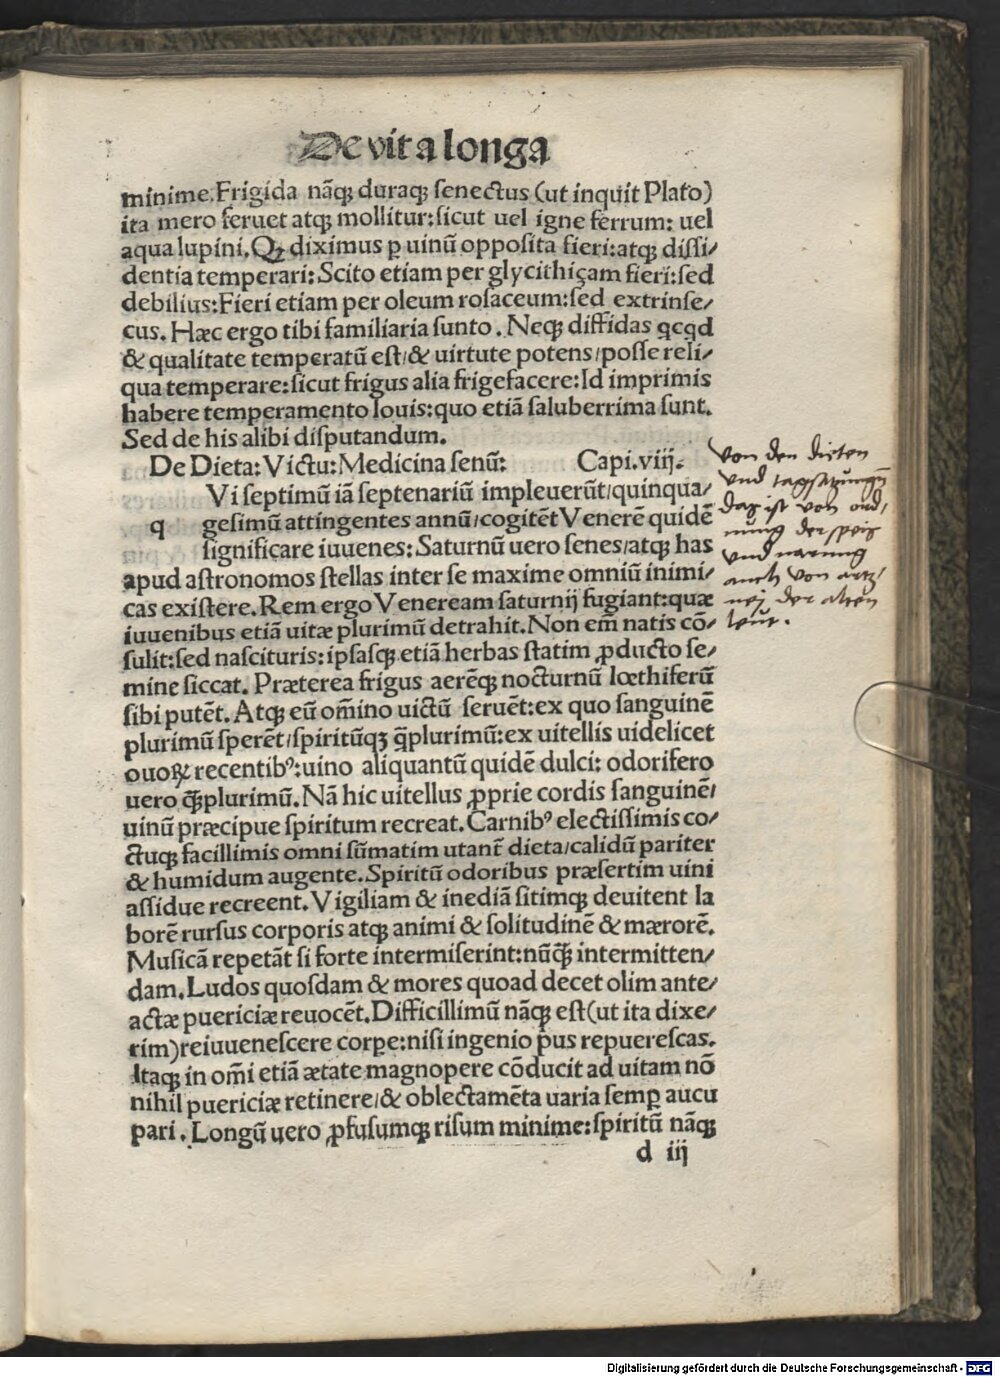 De vita longa
minime. Frigida nāqꝫ duraqꝫ senectus (ut inquit Plato)
ita mero feruet atqꝫ mollitur: sicut uel igne ferrum: uel
aqua lupini. Qꝫ diximus ꝑ uinū opposita fieri: atqꝫ dissi/
dentia temperari: Scito etiam per glycithiçam fieri: sed
debilius: Fieri etiam per oleum rosaceum: sed extrinse/
cus. Hæc ergo tibi familiaria sunto. Neqꝫ diffidas qcqd
& qualitate temperatū est/ & uirtute potens/ posse reli/
qua temperare: sicut frigus alia frigefacere: Id imprimis
habere temperamento Iouis: quo etiā saluberrima sunt.
Sed de his alibi disputandum.
De Dieta: Victu: Medicina senū: Capi. viij.
q Vi septimū iā septenariū impleuerūt/ quinqua/
gesimū attingentes annū/ cogitēt Venerē quidē
significare iuuenes: Saturnū uero senes/ atqꝫ has
apud astronomos stellas inter se maxime omniū inimi/
cas existere. Rem ergo Veneream saturnij fugiant: quæ
iuuenibus etiā uitæ plurimū detrahit. Non em̄ natis cō/
sulit: sed nascituris: ipsasqꝫ etiā herbas statim ꝓducto se/
mine siccat. Præterea frigus aerēqꝫ nocturnū lœthiferū
sibi putēt. Atqꝫ eū om̄ino uictū seruēt: ex quo sanguinē
plurimū sperēt/ spiritūqꝫ q̄plurimū: ex uitellis uidelicet
ouoꝝ recentibꝰ: uino aliquantū quidē dulci: odorifero
uero q̄plurimū. Nā hic uitellus ꝓprie cordis sanguinē/
uinū præcipue spiritum recreat. Carnibꝰ electissimis co/
ctuqꝫ facillimis omni sūmatim utant̄ dieta/ calidū pariter
& humidum augente. Spiritū odoribus præsertim uini
assidue recreent. Vigiliam & inediā sitimqꝫ deuitent la
borē rursus corporis atqꝫ animi & solitudinē & mærorē.
Musicā repetāt si forte intermiserint: nūq̄ intermitten/
dam. Ludos quosdam & mores quoad decet olim ante/
actæ puericiæ reuocēt. Difficillimū nāqꝫ est (ut ita dixe/
rim) reiuuenescere corꝑe: nisi ingenio p̄us repuerescas.
Itaqꝫ in om̄i etiā ætate magnopere cōducit ad uitam nō
nihil puericiæ retinere/ & oblectamēta uaria semꝑ aucu
pari. Longū uero ꝓfusumqꝫ risum minime: spiritū nāqꝫ
d iij
von den dieten
und tagsatzungē
daz ist von ord/
nung der speis
und narung
auch von artz/
nej der alten
leut.
Digitalisierung gefördert durch die Deutsche Forschungsgemeinschaft - DFG